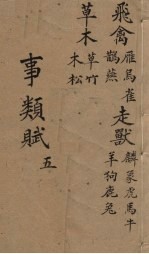 飛禽
雁烏雀
鵲燕
走獸
麟象虎馬牛
羊狗鹿兔
草木
草竹
木松
事類賦
五